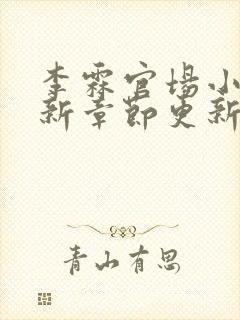 李霖官场小
新章节更新
青山有思